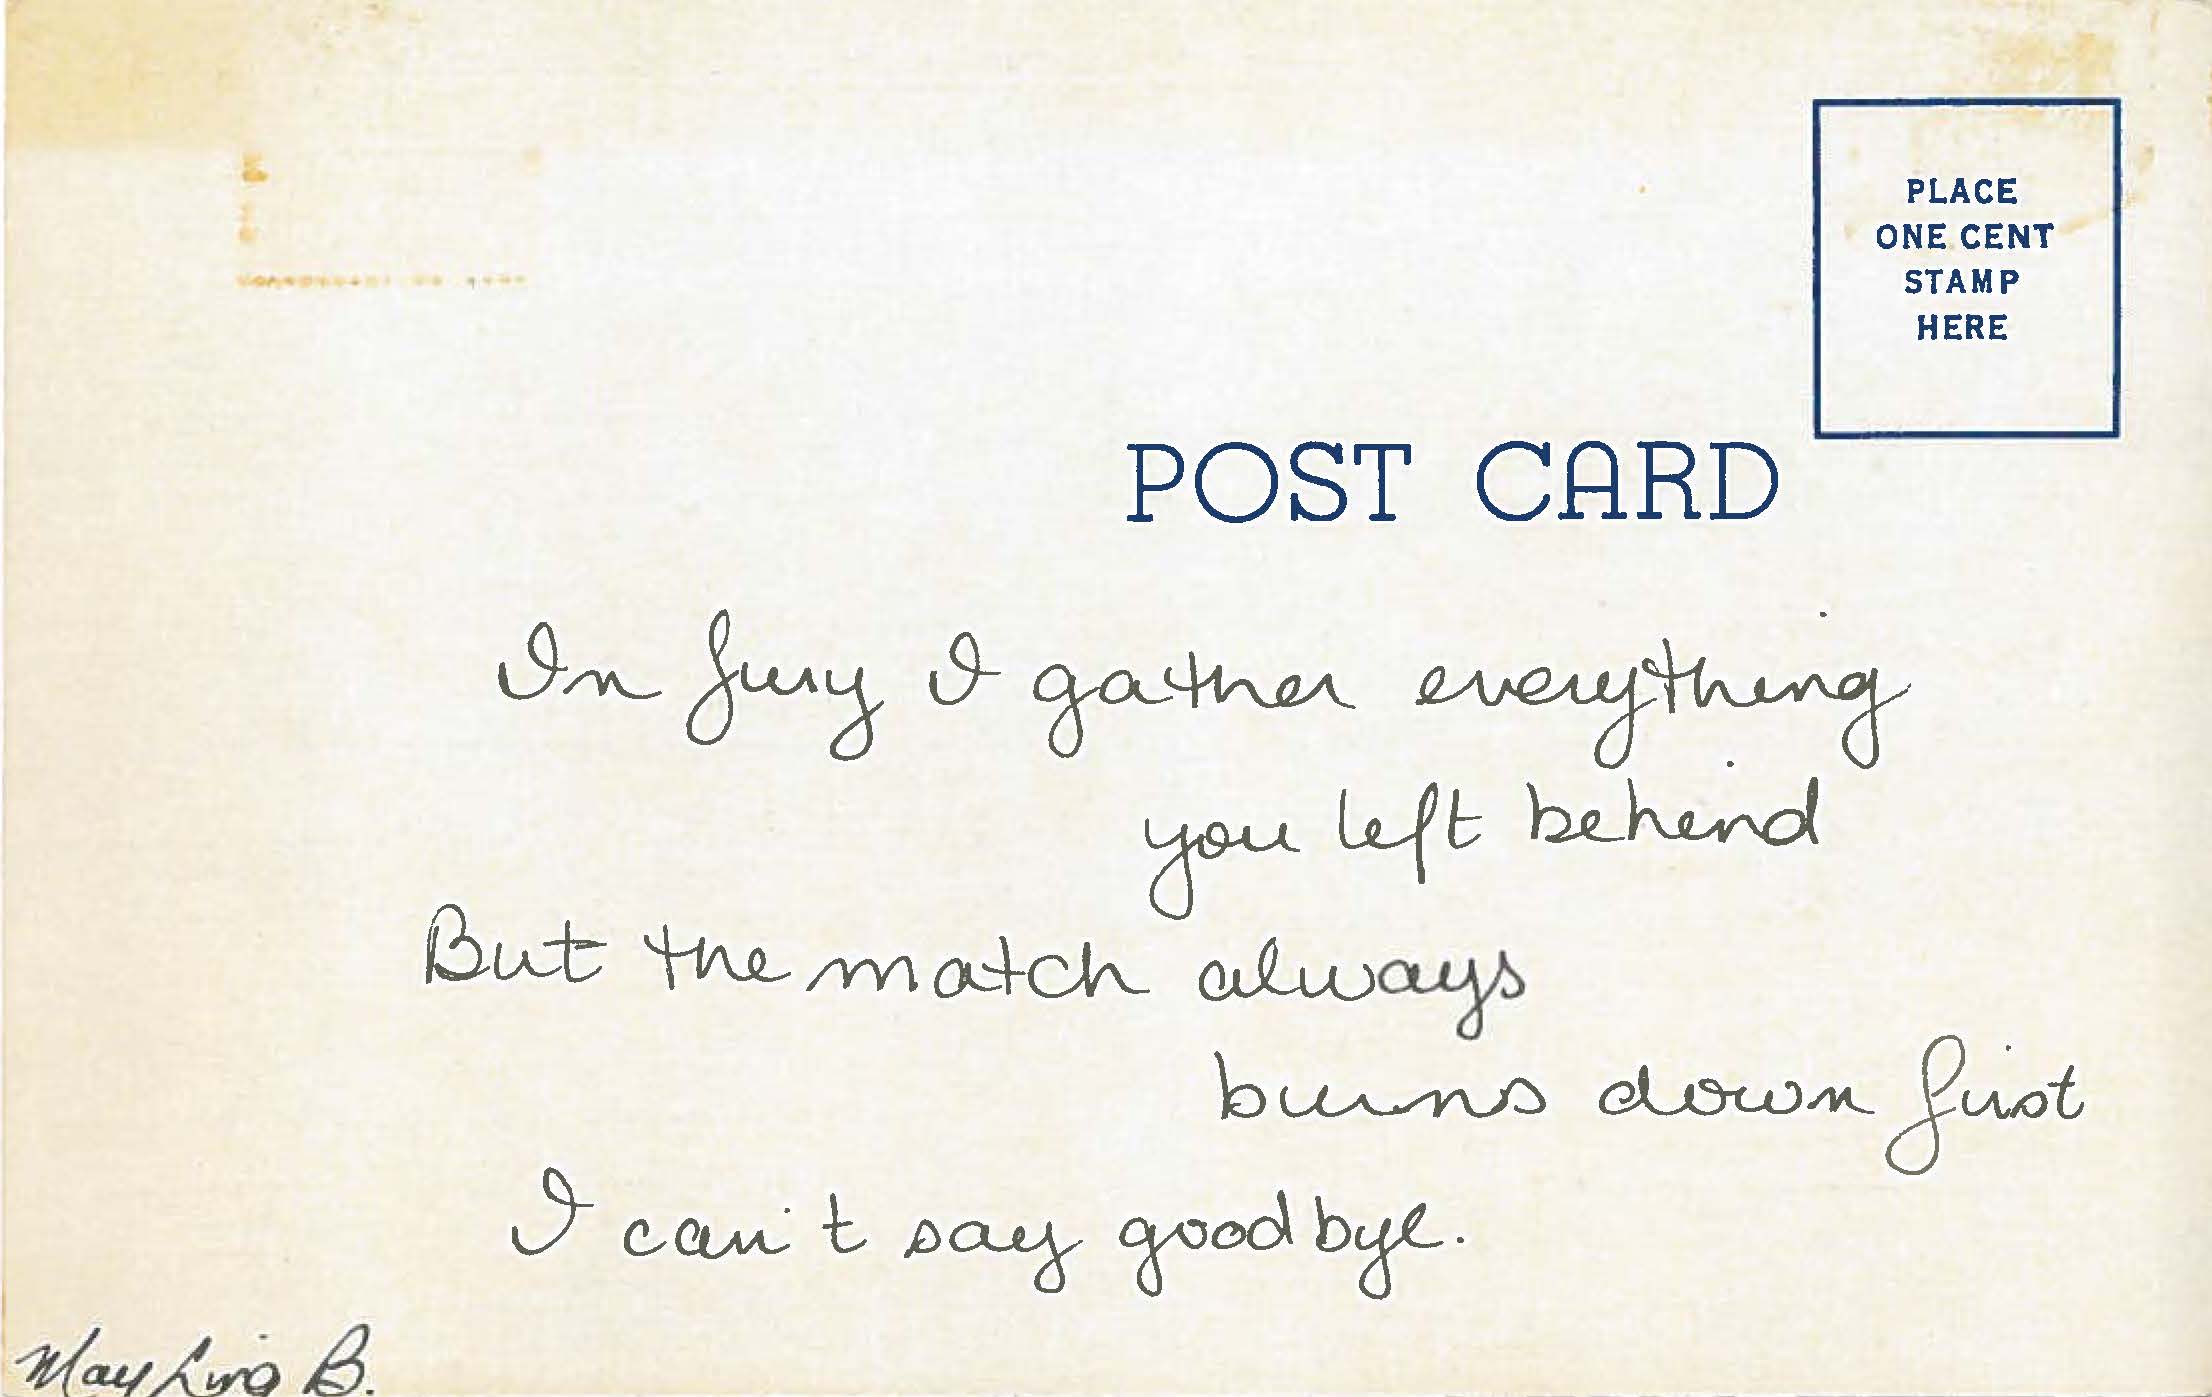 PLACE
ONE CENT
STAMP
HERE
POST CARD
In fury I gather everything
you left behind
But the match always
burns down first
I can't say goodbye.
May Ling B.